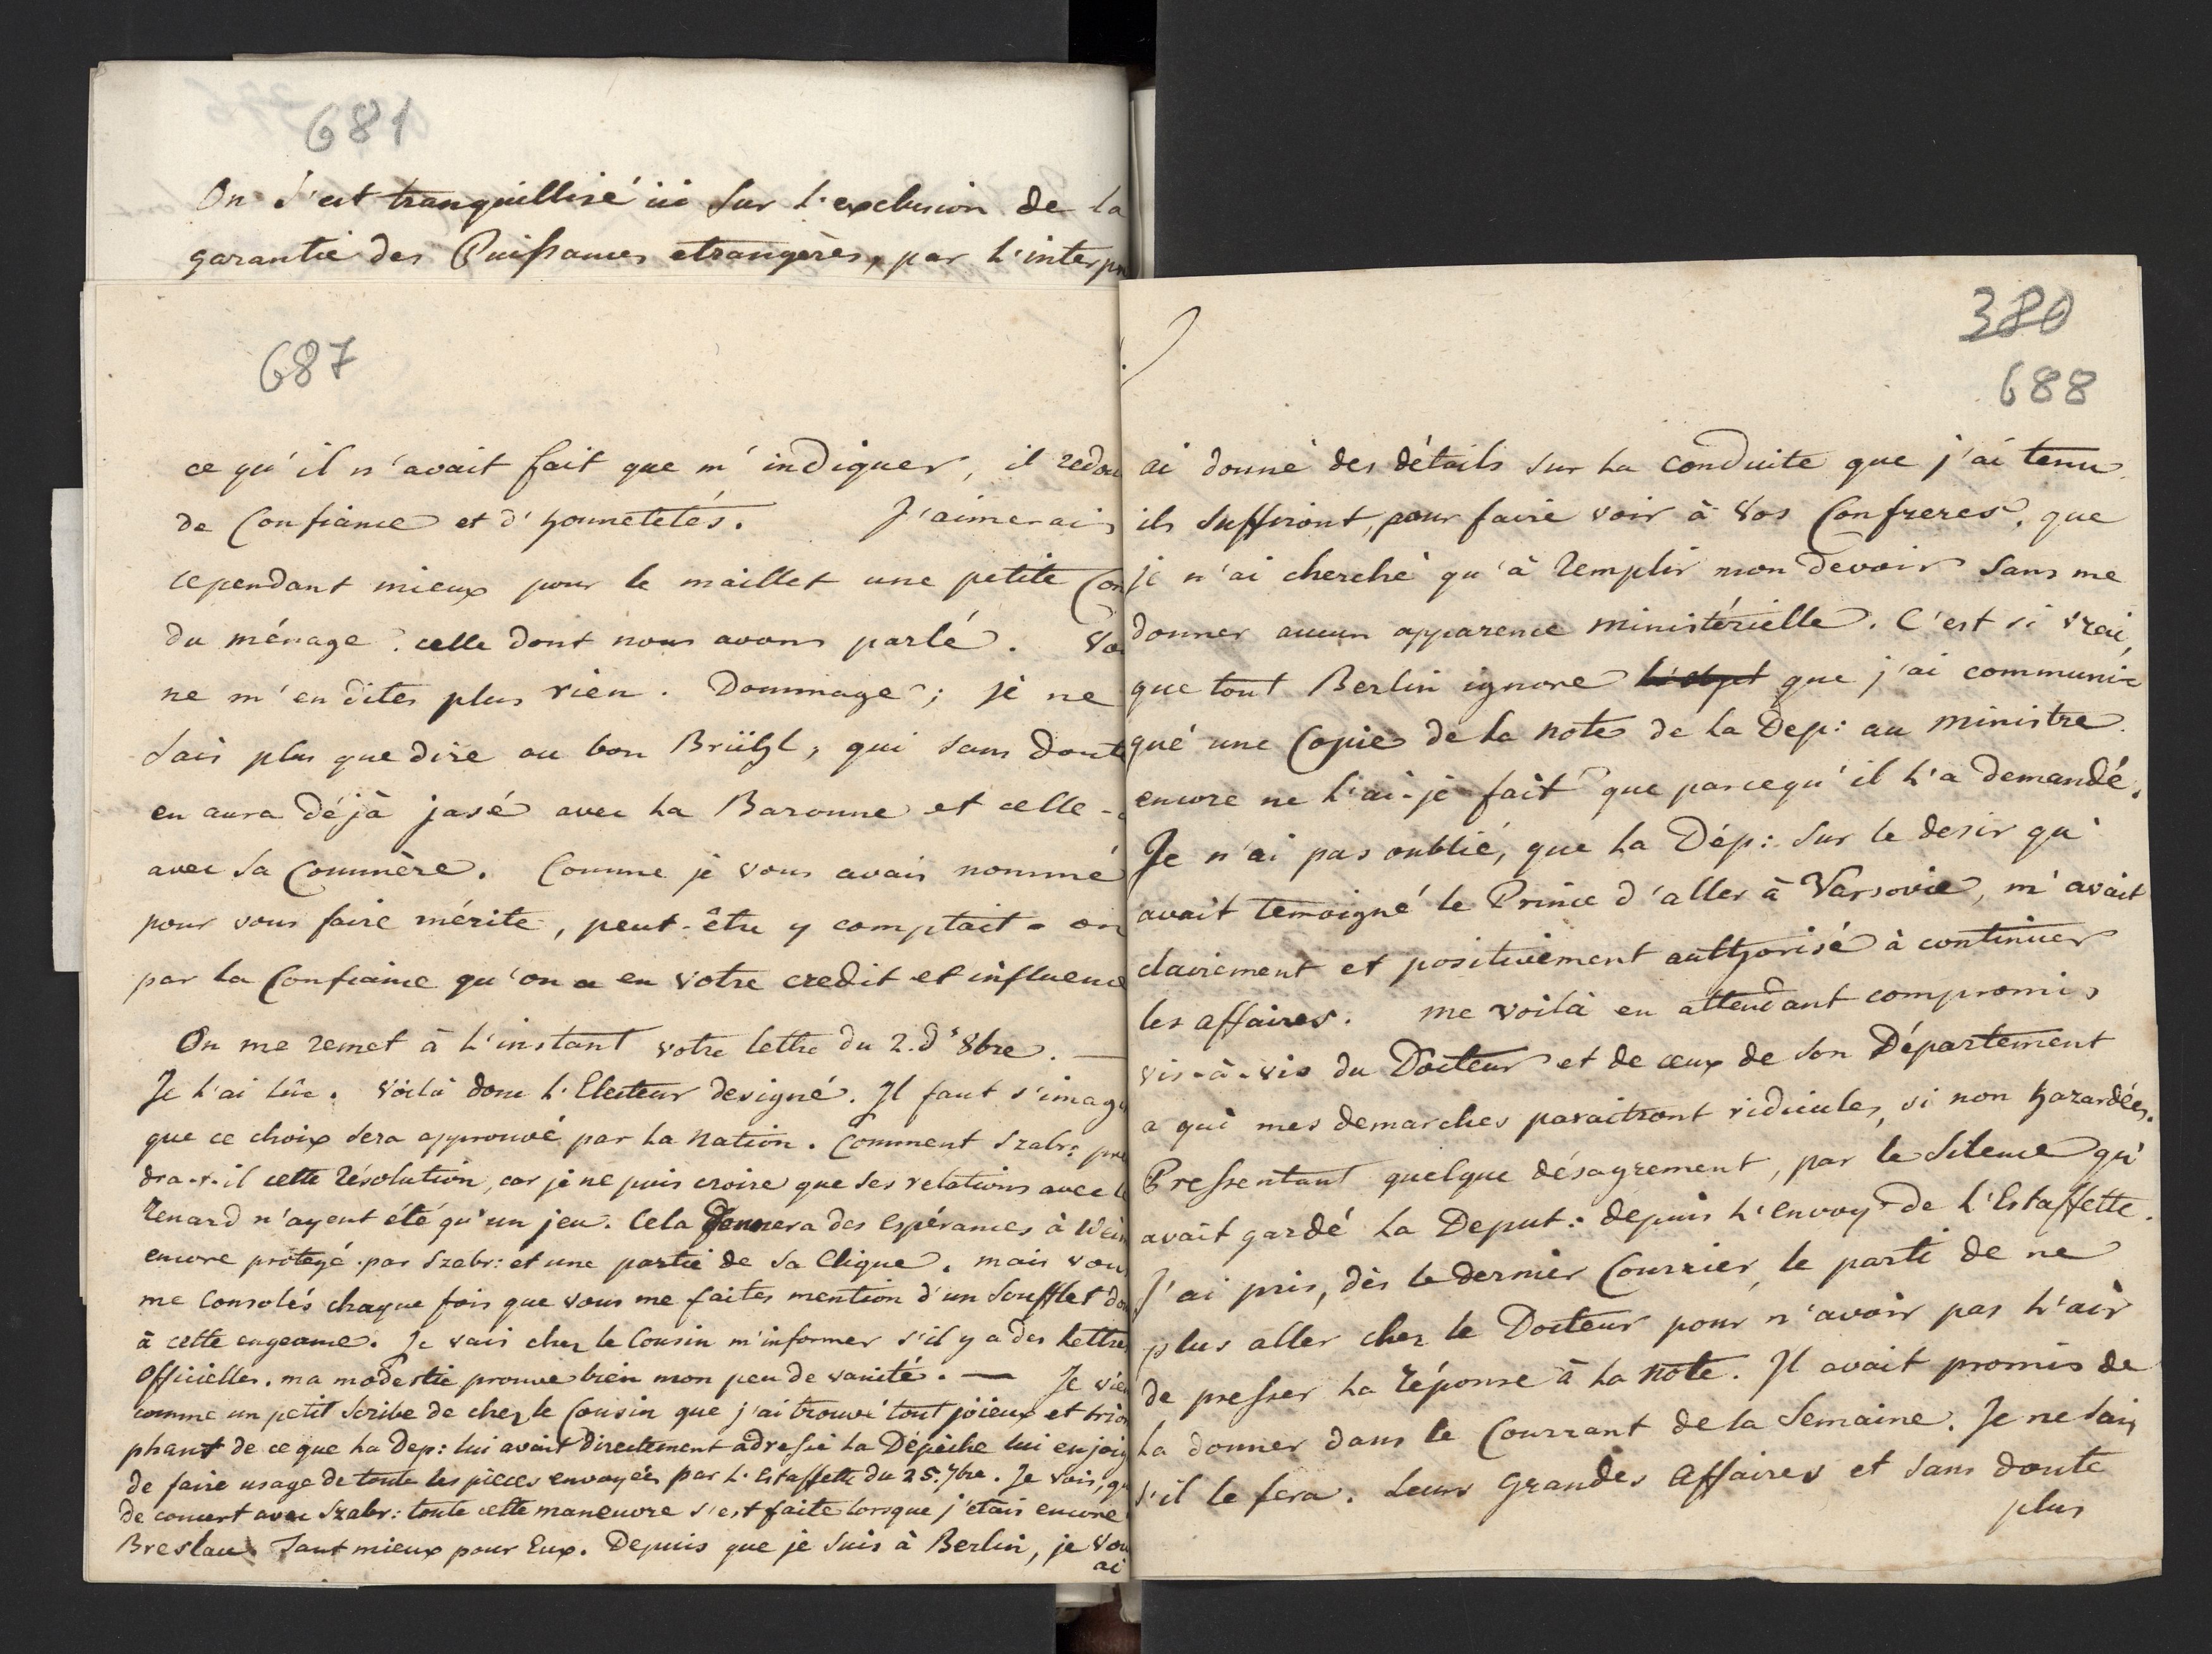 681
On s'est tranquillisé ici sur l'exclusion de la
garantie des Puissances etrangères, par l'interpr
687
ce qu'il n'avait fait que m'indiquer, il redou
de Confiance et d'honnetetés. J'aimerais
cependant mieux pour le maillet une petite Con
du ménage: celle dont nous avons parlé. Vo
ne m'en dites plus rien. Dommage; je ne
sais plus que dire au bon Brühl, qui sans doute
en aura déjà jasé avec la Baronne et celle-
avec sa Commère. Comme je vous avais nommé
pour vous faire mérite, peut-être y comptait-on
par la Confiance qu'on a en votre credit et influence
On me remet à l'instant votre lettre du 2. d' 8bre. —
Je l'ai lüe. Voilà donc l'Electeur designé. Il faut s'imagi
que ce choix sera approuvé par la Nation. Comment Szabr: pre
dra-t-il cette résolution, car je ne puis croire que ses relations avec le
Renard n'ayent été qu'un jeu. Cela donnera des espérances à Wei
encore protegé par Szabr: et une partie de sa Clique. mais vous
me consolés chaque fois que vous me faites mention d'un Soufflet do
à cette engeance. Je vais chez le Cousin m'informer s'il y a des lettres
Officielles. ma modestie prouve bien mon peu de vanité. — Je vie
comme un petit Scribe de chez le Cousin que j'ai trouvé tout joieux et trion
phant de ce que la Dep: lui avait directement adressé la Dépêche lui enjoig
de faire usage de toute les pièces envoyées par l'Estaffette du 25. 7bre. Je vois, qu
de concert avec Szabr: toute cette maneuvre s'est faite lorsque j'etais encore
Breslau. Tant mieux pour Eux. Depuis que je suis à Berlin, je vou
ai
380
688
ai donné des détails sur la conduite que j'ai tenu
ils suffiront, pour faire voir à vos Confreres, que
je n'ai cherché qu'à remplir mon devoir sans me
donner aucun apparence ministérielle. C'est si vrai,
que tout Berlin ignore l'objet que j'ai communi-
qué une Copie de la note de la Dep: au ministre.
encore ne l'ai-je fait que parcequ'il l'a demandé.
Je n'ai pas oublié, que la Dép: sur le desir qu'
avait temoigné le Prince d'aller à Varsovie, m'avait
clairement et positivement authorisé à continuer
les affaires. me voilà en attendant compromis
vis-à-vis du Docteur et de ceux de son Département
a qui mes demarches paraitront ridicules, si non hazardées.
Pressentant quelque désagrement, par le silence qu'
avait gardé la Deput: depuis l'envoy de l'Estaffette.
J'ai pris, dès le dernier Courrier, le parti de ne
plus aller chez le Docteur pour n'avoir pas l'air
de presser la réponse à la note. Il avait promis de
la donner dans le Courrant de la Semaine. Je ne sais
s'il le fera. Leurs Grandes Affaires et sans doute
plus